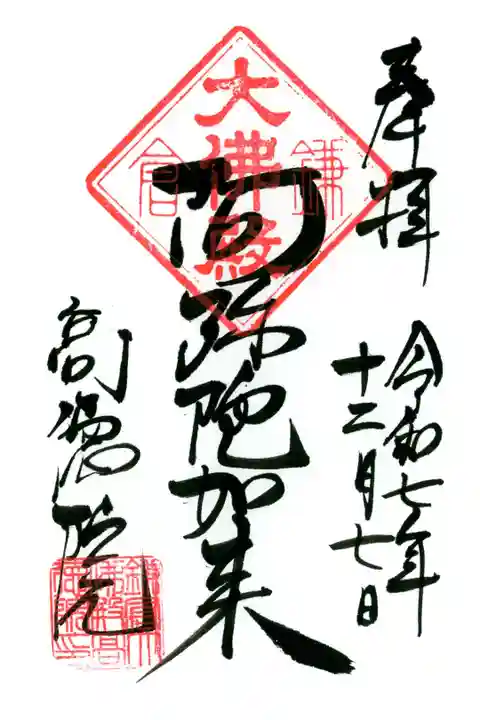 奉拝
令和七年
十二月七日
大佛殿
鎌倉
阿弥陀如来
高徳院